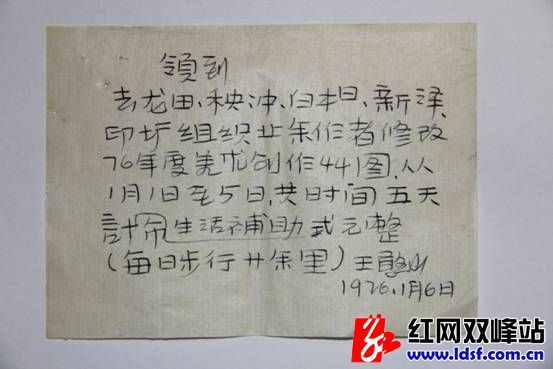 領到
去龙田、秧冲、白本日、新泽、
印圹组织业余作者修改
76年度美术创作441图,从
1月1日至5日,共时间五天
計币生活補助弍元整
(每日步行廿余里)王憨山
1976.1月6日
红网双峰站
www.ldsf.com.cn